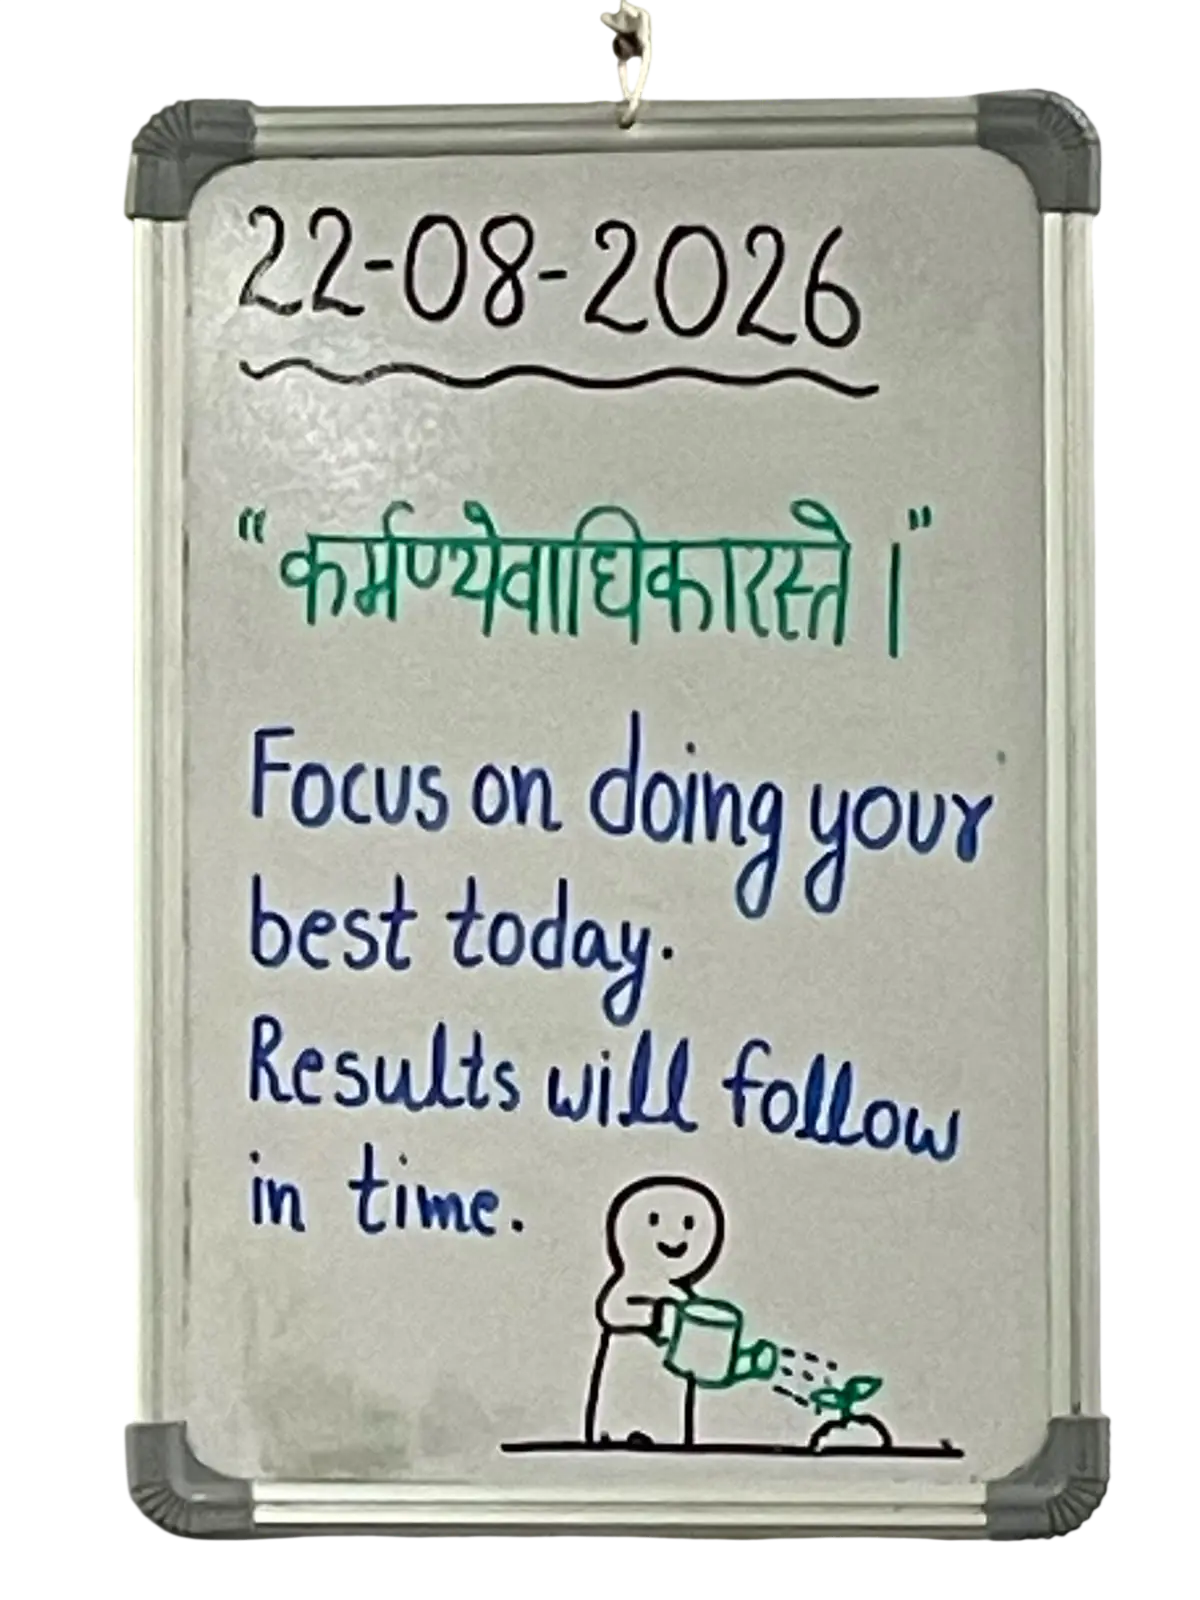 22-08-2026
"कर्मण्येवाधिकारस्ते ।"
Focus on doing your
best today.
Results will follow
in time.